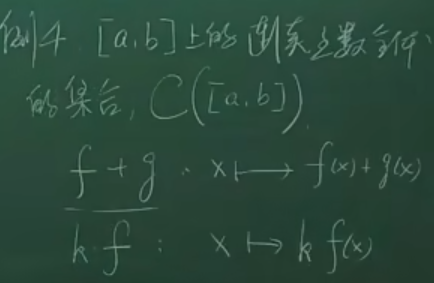 例4. [a,b]上的连续函数全体
的集合, C([a,b]).
f+g : x ⟼ f(x)+g(x)
k·f : x ↦ k f(x)